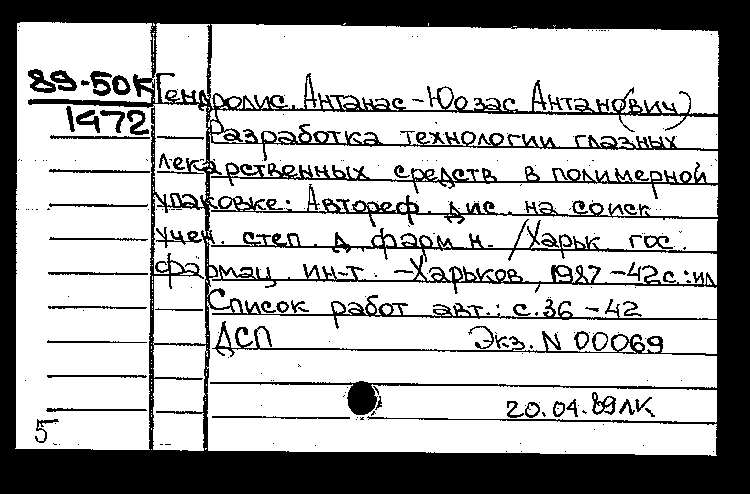 89-50К
1472
Гендролис, Антанас-Юозас Антано(вич)
Разработка технологии глазных
лекарственных средств в полимерной
упаковке: Автореф. дис. на соиск
учен. степ. д. фарм н. /Харьк. гос.
фармац. ин-т. -Харьков, 1987 -42с.:ил
Список работ авт.: с.36 -42
ДСП Экз. N 00069
20.04.89ЛК
5